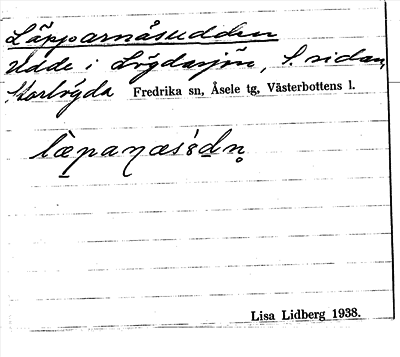 Läpparnåsudden
Udde i Lögdasjön, S. sidan,
Norlögda Fredrika sn, Åsele tg, Västerbottens l.
Lisa Lidberg 1938.